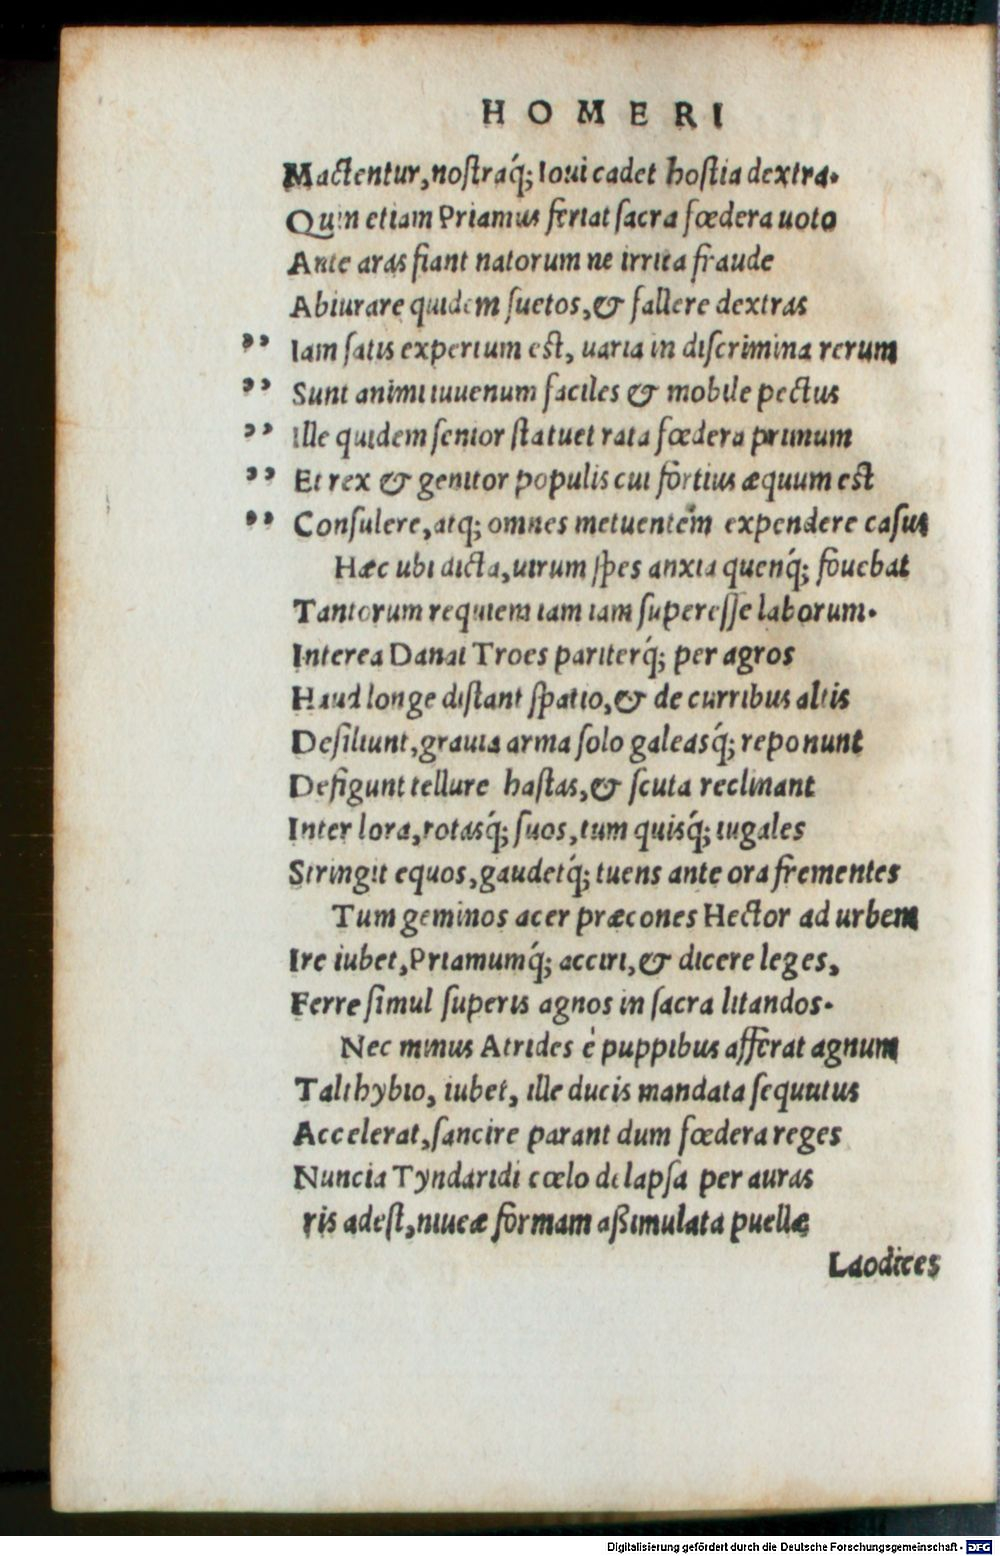 HOMERI
Mactentur, nostraq́; Ioui cadet hostia dextra.
Quin etiam Priamus feriat sacra fœdera uoto
Ante aras fiant natorum ne irrita fraude
Abiurare quidem suetos, & fallere dextras
,, Iam satis expertum est, uaria in discrimina rerum
,, Sunt animi iuuenum faciles & mobile pectus
,, Ille quidem senior statuet rata fœdera primum
,, Et rex & genitor populis cui fortius æquum est
,, Consulere, atq; omnes metuentem expendere casus
Hæc ubi dicta, uirum spes anxia quenq́; fouebat
Tantorum requiem iam iam superesse laborum.
Interea Danai Troes pariterq́; per agros
Haud longe distant spatio, & de curribus altis
Desiliunt, grauia arma solo galeasq́; reponunt
Defigunt tellure hastas, & scuta reclinant
Inter lora, rotasq́; suos, tum quisq́; iugales
Stringit equos, gaudetq́; tuens ante ora frementes
Tum geminos acer præcones Hector ad urbem
Ire iubet, Priamumq́; acciri, & dicere leges,
Ferre simul superis agnos in sacra litandos.
Nec minus Atrides è puppibus afferat agnum
Talthybio, iubet, ille ducis mandata sequutus
Accelerat, sancire parant dum fœdera reges
Nuncia Tyndaridi cœlo delapsa per auras
ris adest, niueæ formam aßimulata puellæ
Laodices
Digitalisierung gefördert durch die Deutsche Forschungsgemeinschaft - DFG